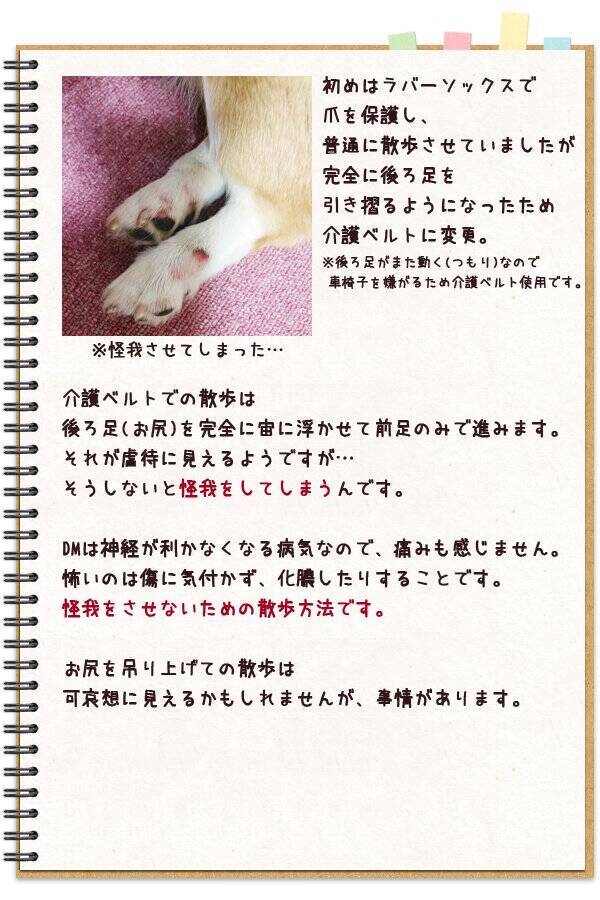 初めはラバーソックスで
爪を保護し、
普通に散歩させていましたが
完全に後ろ足を
引き摺るようになったため
介護ベルトに変更。
※後ろ足がまた動く(つもり)なので
車椅子を嫌がるため介護ベルト使用です。
※怪我させてしまった…
介護ベルトでの散歩は
後ろ足(お尻)を完全に宙に浮かせて前足のみで進みます。
それが虐待に見えるようですが…
そうしないと怪我をしてしまうんです。
DMは神経が利かなくなる病気なので、痛みも感じません。
怖いのは傷に気付かず、化膿したりすることです。
怪我をさせないための散歩方法です。
お尻を吊り上げての散歩は
可哀想に見えるかもしれませんが、事情があります。